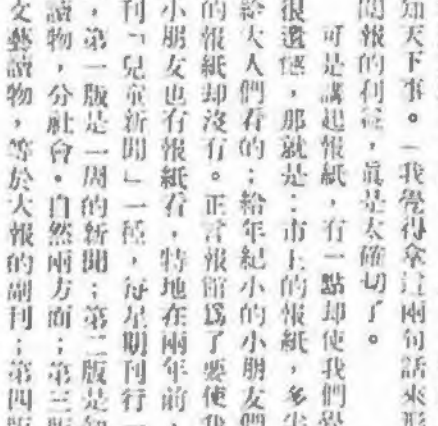 知天下事。﹂我覺得拿這兩句話來形
聞報的利益，眞是太確切了。
可是講起報紙，有一點却使我們覺
很遺憾，那就是：市上的報紙，多半
給大人們看的；給年紀小的小朋友們
的報紙却沒有。正言報館爲了要使我
小朋友也有報紙看，特地在兩年前，
刊﹁兒童新聞﹂一種，每星期刊行一
，第一版是一周的新聞；第二版是知
讀物，分社會・自然兩方面；第三版
文藝讀物，等於大報的副刊；第四版